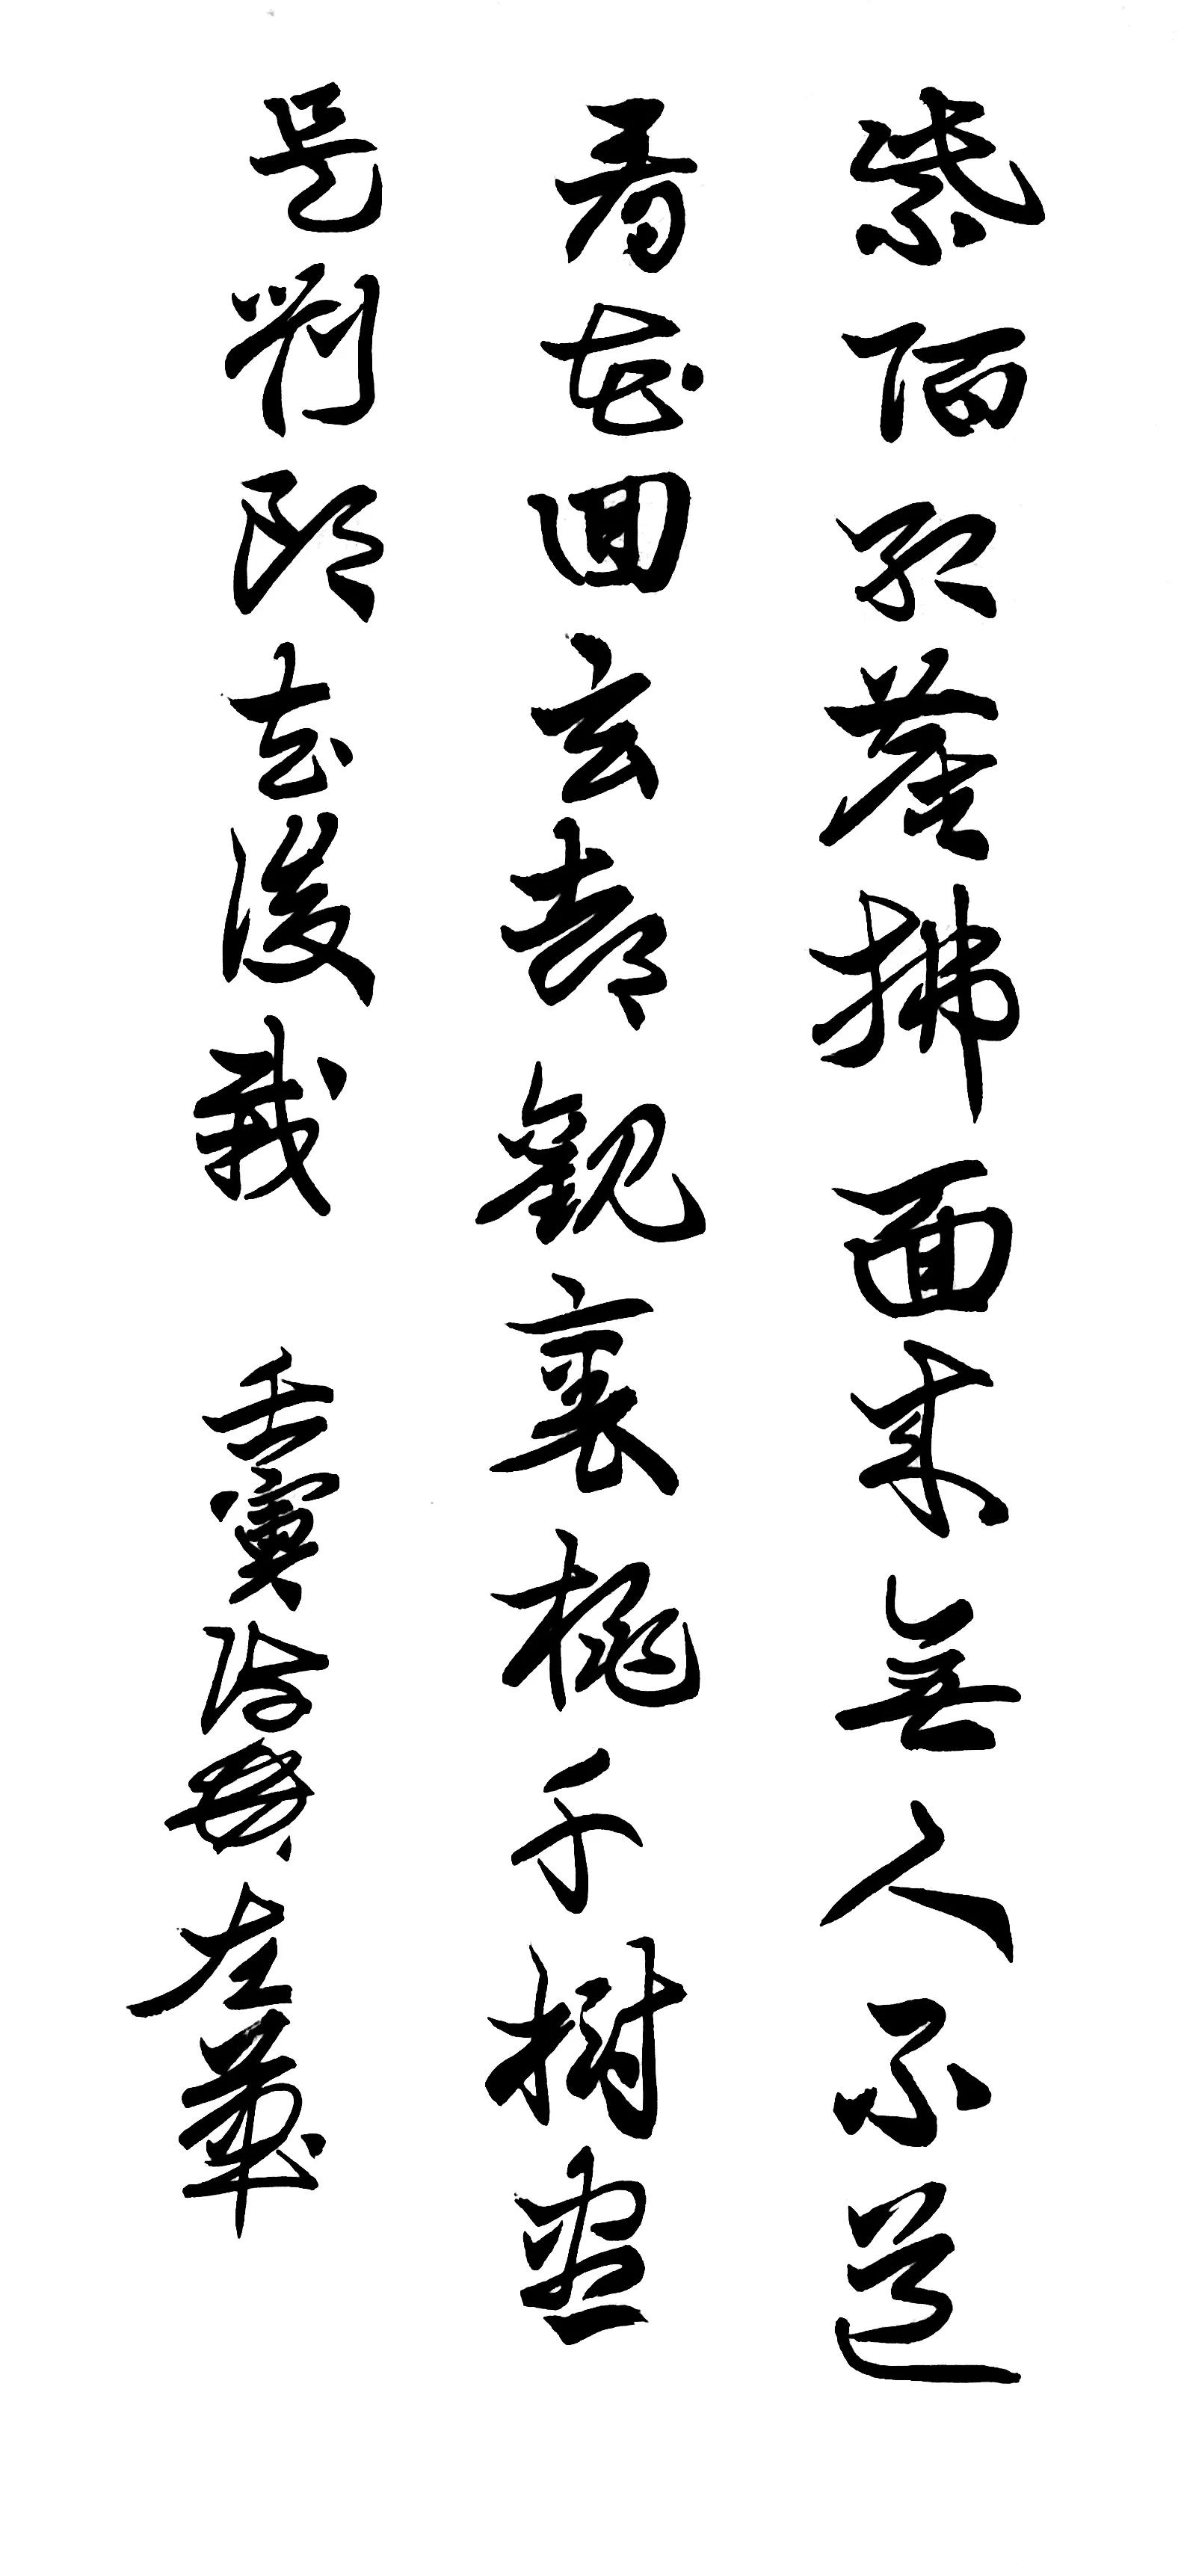 紫陌紅塵拂面來無人不道
看花回玄都觀裏桃千樹盡
是劉郎去後栽 壬寅 左